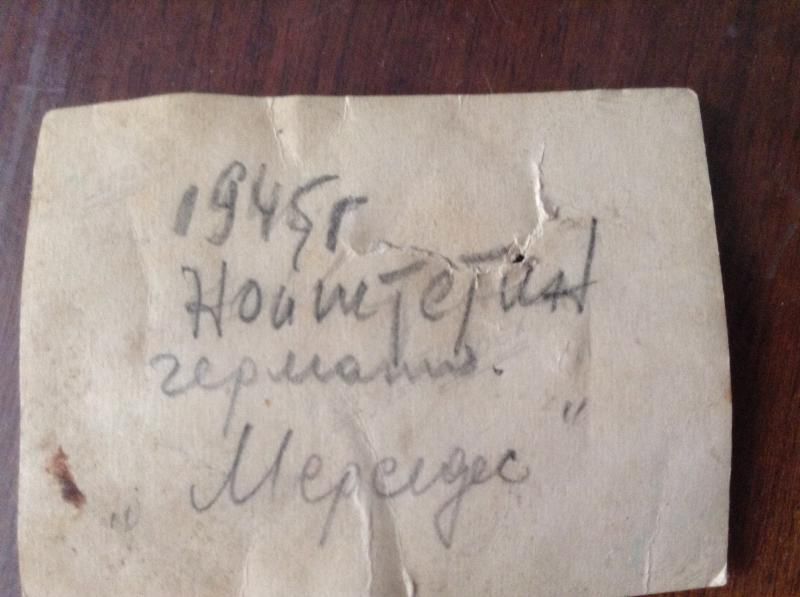 1945г
Нойштетин
германия.
"Мерседес"